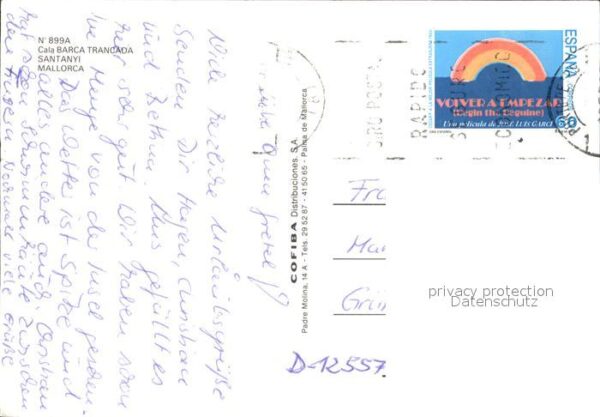 N° 899A
Cala BARCA TRANCADA
SANTANYI
MALLORCA
COFIBA Distribuciones, S.A.
Padre Molina, 14 A - Tels. 29 52 87 - 41 50 65 - Palma de Mallorca
GIRO POSTAL
RAPIDO
SEGURO
ECONOMICO
ESPAÑA
CORREOS
VOLVER A EMPEZAR
(Begin the Beguine)
Una película de JOSE LUIS GARCI
Liebe Oma Gretel!
Viele Urlaubsgrüße
senden Dir Hagen, Christian
und Bettina. Uns gefällt es
hier sehr gut. Wir haben schon
eine Menge von der Insel gesehen.
Das Wetter ist Spitze und
alles andere auch. Christian
hat schon
den Nochmals viele Grüße
Fra
Mar
Grün
D-12557
privacy protection
Datenschutz